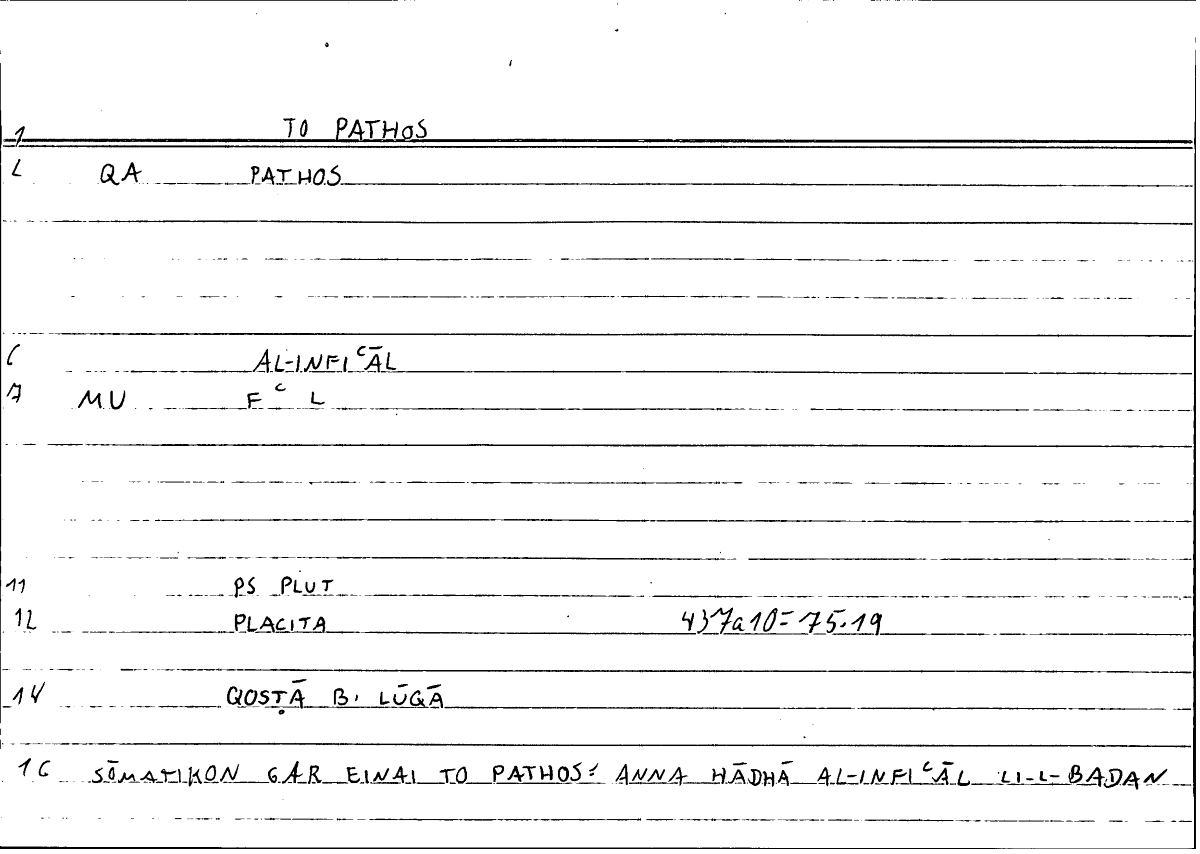 1 TO PATHOS
2 QA PATHOS
6 AL-INFIᶜĀL
7 MU F ᶜ L
11 PS PLUT
12 PLACITA 437a10=75.19
14 QOSṬĀ B. LŪQĀ
16 SŌMATIKON GAR EINAI TO PATHOS: ANNA HĀDHĀ AL-INFIᶜĀL LI-L-BADAN